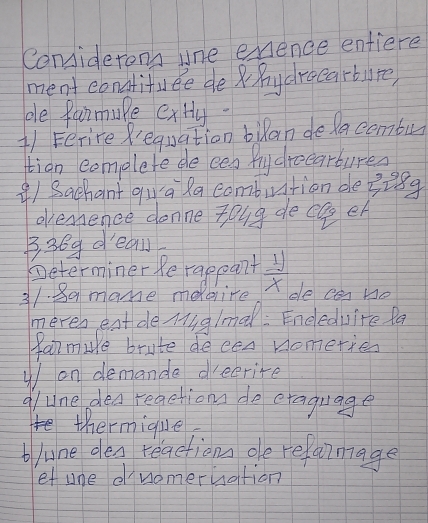 Considerons une essence entiere
ment constituée de l'hydrocarbure,
de formule CxHy.
1/ Ecrire l'equation bilan de la combus
tion complete de ces hydrocarbures
2/ Sachant qu'à la combustion de 2,28g
d'essence donne 7,04g de CO2 et
3,36g d'eau.
Determiner le rapport y/x
3/. Sa masse molaire de ces iso
meres est de 114g/mol. Endeduire la
formule brute de ces isomeries
4/ on demande d'ecrire
a/ une des reactions de craquage
thermique.
b/ une des réactions de reformage
et une d'isomerisation